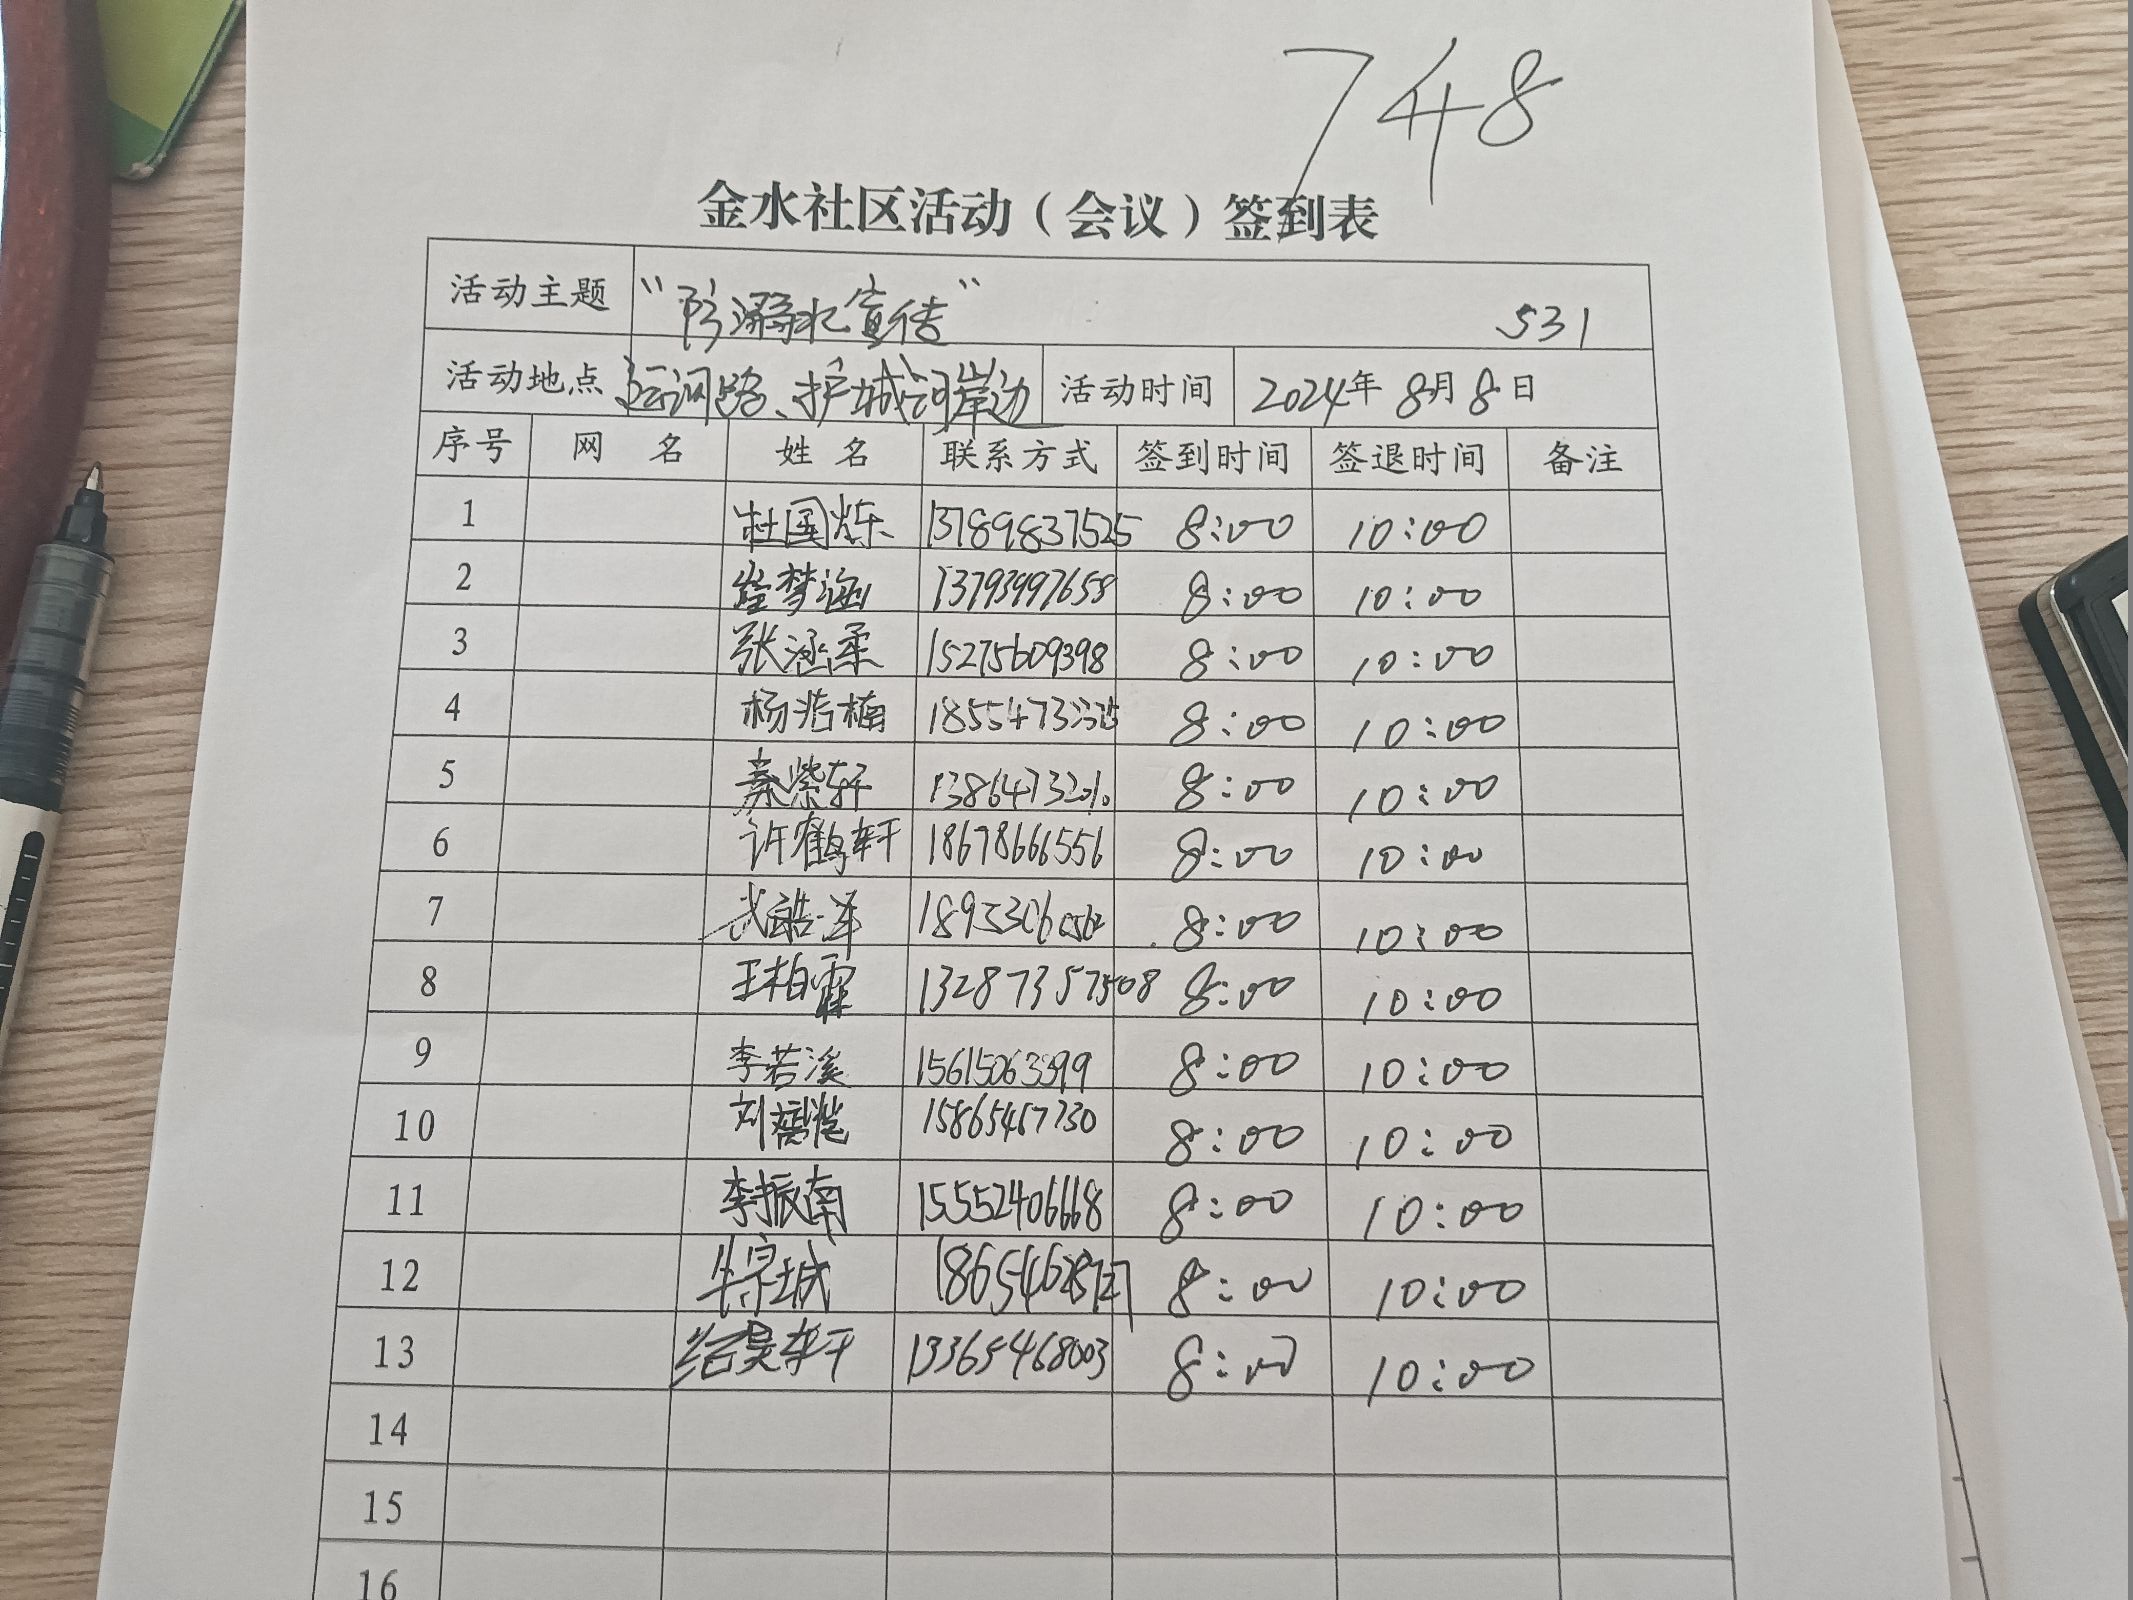 748
金水社区活动（会议）签到表
活动主题 “防溺水宣传” 531
活动地点 运河路、护城河岸边 活动时间 2024年8月8日
序号 网名 姓名 联系方式 签到时间 签退时间 备注
1 杜国烁 13789837525 8:00 10:00
2 崔梦涵 13793997658 8:00 10:00
3 张涵柔 15275609398 8:00 10:00
4 8:00 10:00
5 秦紫轩 8:00 10:00
6 许鹤轩 18678666556 8:00 10:00
7 8:00 10:00
8 王柏霖 8:00 10:00
9 李若溪 15615063399 8:00 10:00
10 15865467730 8:00 10:00
11 李振南 15552406668 8:00 10:00
12 8:00 10:00
13 13365468003 8:00 10:00
14
15
16